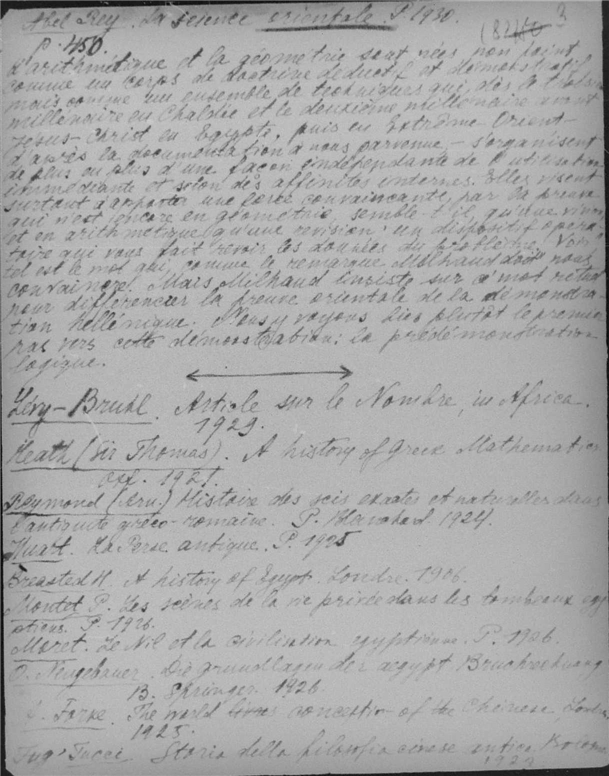 Abel Rey. La science orientale P. 1930.
3
p. 450.
L'arithmétique et la géométrie sont nées non point
comme un corps de doctrine déductif et démonstratif
mais comme un ensemble de techniques qui, dès le
millénaire en Chaldée et le deuxième millénaire avant
Jésus-Christ en Egypte, puis en Extrême Orient -
d'après la documentation à nous parvenue - s'organisent
de plus en plus d'une façon indépendante de l'utilisation
immédiante et selon des affinités internes. Elles visent
surtout d'apporter une force convaincante par la preuve
qui n'est encore en géométrie, semble-t'il, qu'une vision
et en arithmétique qu'une révision: un dispositif opéra-
toire qui vous fait revoir les données du problème. Voir
tel est le mot qui, comme le remarque Milhaud doit nous
convaincre. Mais Milhaud insiste sur ce mot
pour différencier la preuve orientale de la démonstra-
tion hellénique. Nous y voyons bien plutôt le premier
pas vers cette démonstration: la prédémonstration
logique.
Lévy-Bruhl. Article sur le Nombre, in Africa.
1929.
Heath (Sir Thomas). A history of Greek Mathematics
Oxf. 1921.
Reymond (Arn.) Histoire des scies exactes et naturelles dans
l'antiquité gréco-romaine. P. Blanchard. 1924.
Huart. La Perse antique. P. 1925
Breasted H. A history of Egypt. Londre. 1906.
Montet P. Les scènes de la vie privée dans les tombeaux egy
ptiens. P. 1926.
Moret. Le Nil et la civilisation egyptienne. P. 1926.
O. Neugebauer. Die Grundlagen der aegypt Bruchrechnung
B. Springer. 1926.
Forke. The world conception of the Chinese, London
1925.
Tucci. Storia della filosofia cinese antica, Bologne